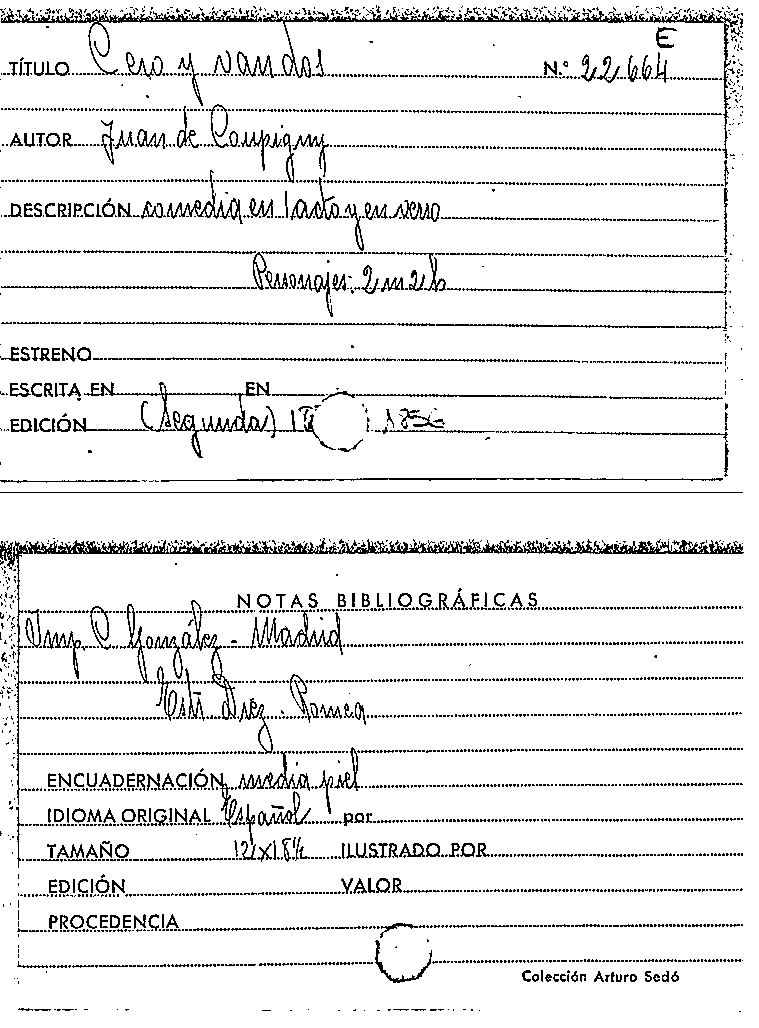 E
TÍTULO Cero y van dos N.° 22664
AUTOR Juan de Coupigny
DESCRIPCIÓN comedia en 1 acto y en verso
Personajes: 2 m 2 h
ESTRENO
ESCRITA EN EN
EDICIÓN (Segunda) 1856
NOTAS BIBLIOGRÁFICAS
Imp. C. González - Madrid
Diez - Romea
ENCUADERNACIÓN media piel
IDIOMA ORIGINAL Español por
TAMAÑO ILUSTRADO POR
EDICIÓN VALOR
PROCEDENCIA
Colección Arturo Sedó